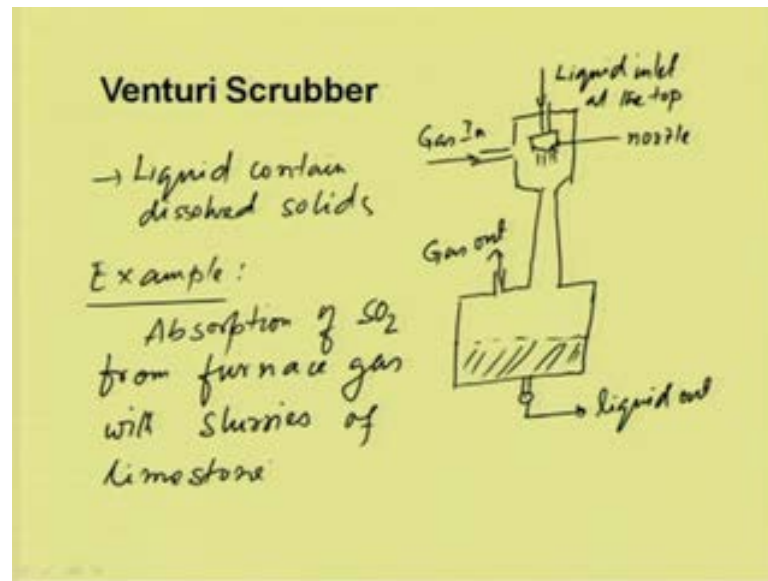 Venturi Scrubber
→ Liquid contain
dissolved solids
Example:
Absorption of SO₂
from furnace gas
with slurries of
limestone
Liquid inlet
at the top
Gas In
nozzle
Gas out
liquid out